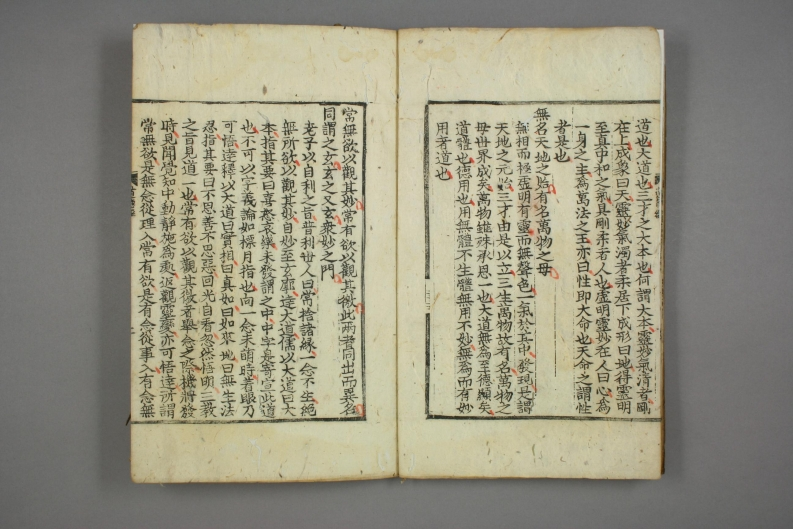 道也大道也三才之大本也何謂大本靈妙氣清者剛
在上成象曰天靈妙氣濁者柔居下成形曰地得靈明
至眞中和之氣具剛柔者人也虛明靈妙在人曰心爲
一身之主爲萬法之王亦曰性即大命也天命之謂性
者是也
無名天地之始有名萬物之母
無相而極虛明有靈而無聲色一氣於其中發現是謂
天地之元始三才由是以立三生萬物故有名萬物之
母世界成矣萬物雖殊承恩一也大道無爲至德顯矣
道體也德用也用無體不生體無用不妙無爲而有妙
用者道也
常無欲以觀其妙常有欲以觀其徼此兩者同出而異名
同謂之玄玄之又玄衆妙之門
老子以自利之旨普利世人曰常捨諸緣一念不生絕
無所欲以觀其妙自妙至玄廓達大道儒以大道曰大
本指其要曰喜怒哀樂未發謂之中中字是寄宣此道
也不可以字義論如標月指也向一念未萌時着眼力
可悟達釋以大道曰實相曰眞如曰如來地曰無生法
忍指其要曰不思善不思惡回光自看忽然悟明三敎
之旨見道一也常有欲以觀其徼者擧念之際機將發
時見聞覺知中動靜施爲處返觀靈臺亦可悟達所謂
常無欲是無念從理入常有欲是有念從事入有念無